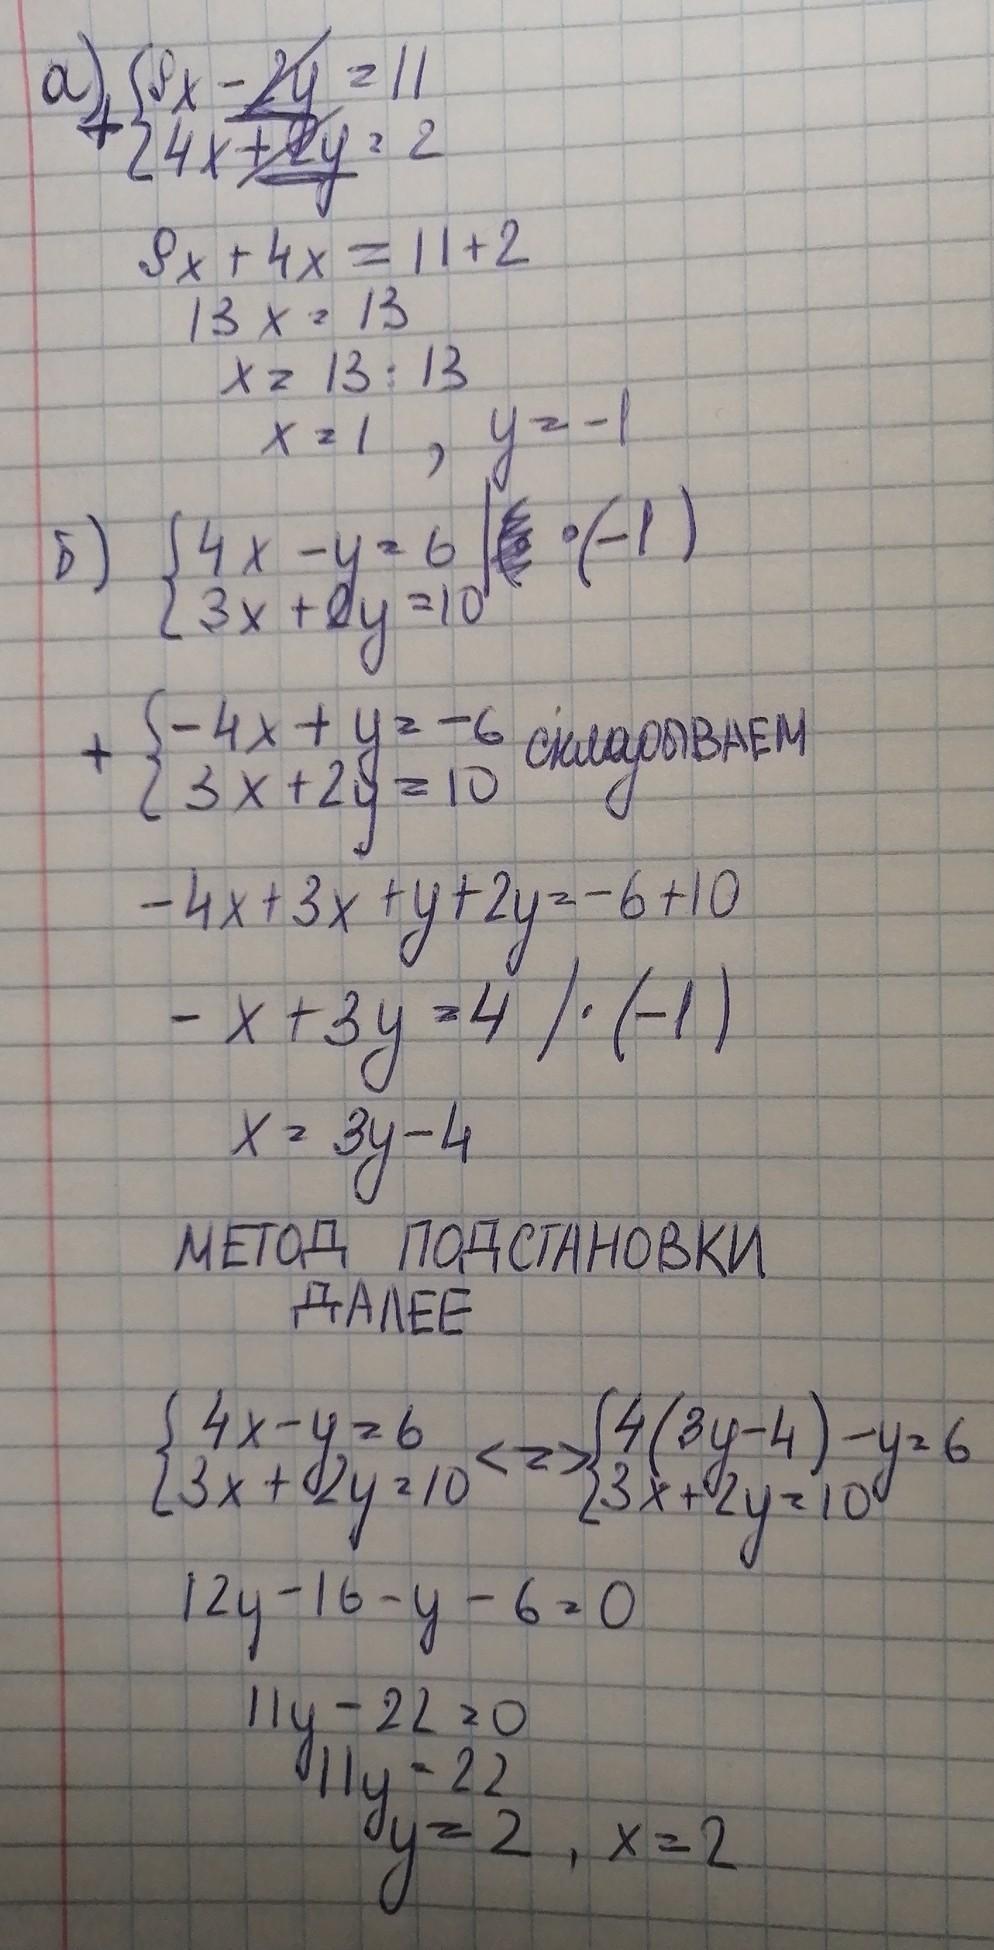 а) { 9x - 2y = 11
+ { 4x + 2y = 2
9x + 4x = 11 + 2
13x = 13
x = 13 : 13
x = 1 , y = -1
б) { 4x - y = 6 | · (-1)
{ 3x + 2y = 10
{ -4x + y = -6 складыВАЕМ
+ { 3x + 2y = 10
-4x + 3x + y + 2y = -6 + 10
- x + 3y = 4 / · (-1)
x = 3y - 4
МЕТОД ПОДСТАНОВКИ
ДАЛЕЕ
{ 4x - y = 6 <=> { 4(3y - 4) - y = 6
{ 3x + 2y = 10 { 3x + 2y = 10
12y - 16 - y - 6 = 0
11y - 22 = 0
11y = 22
y = 2 , x = 2